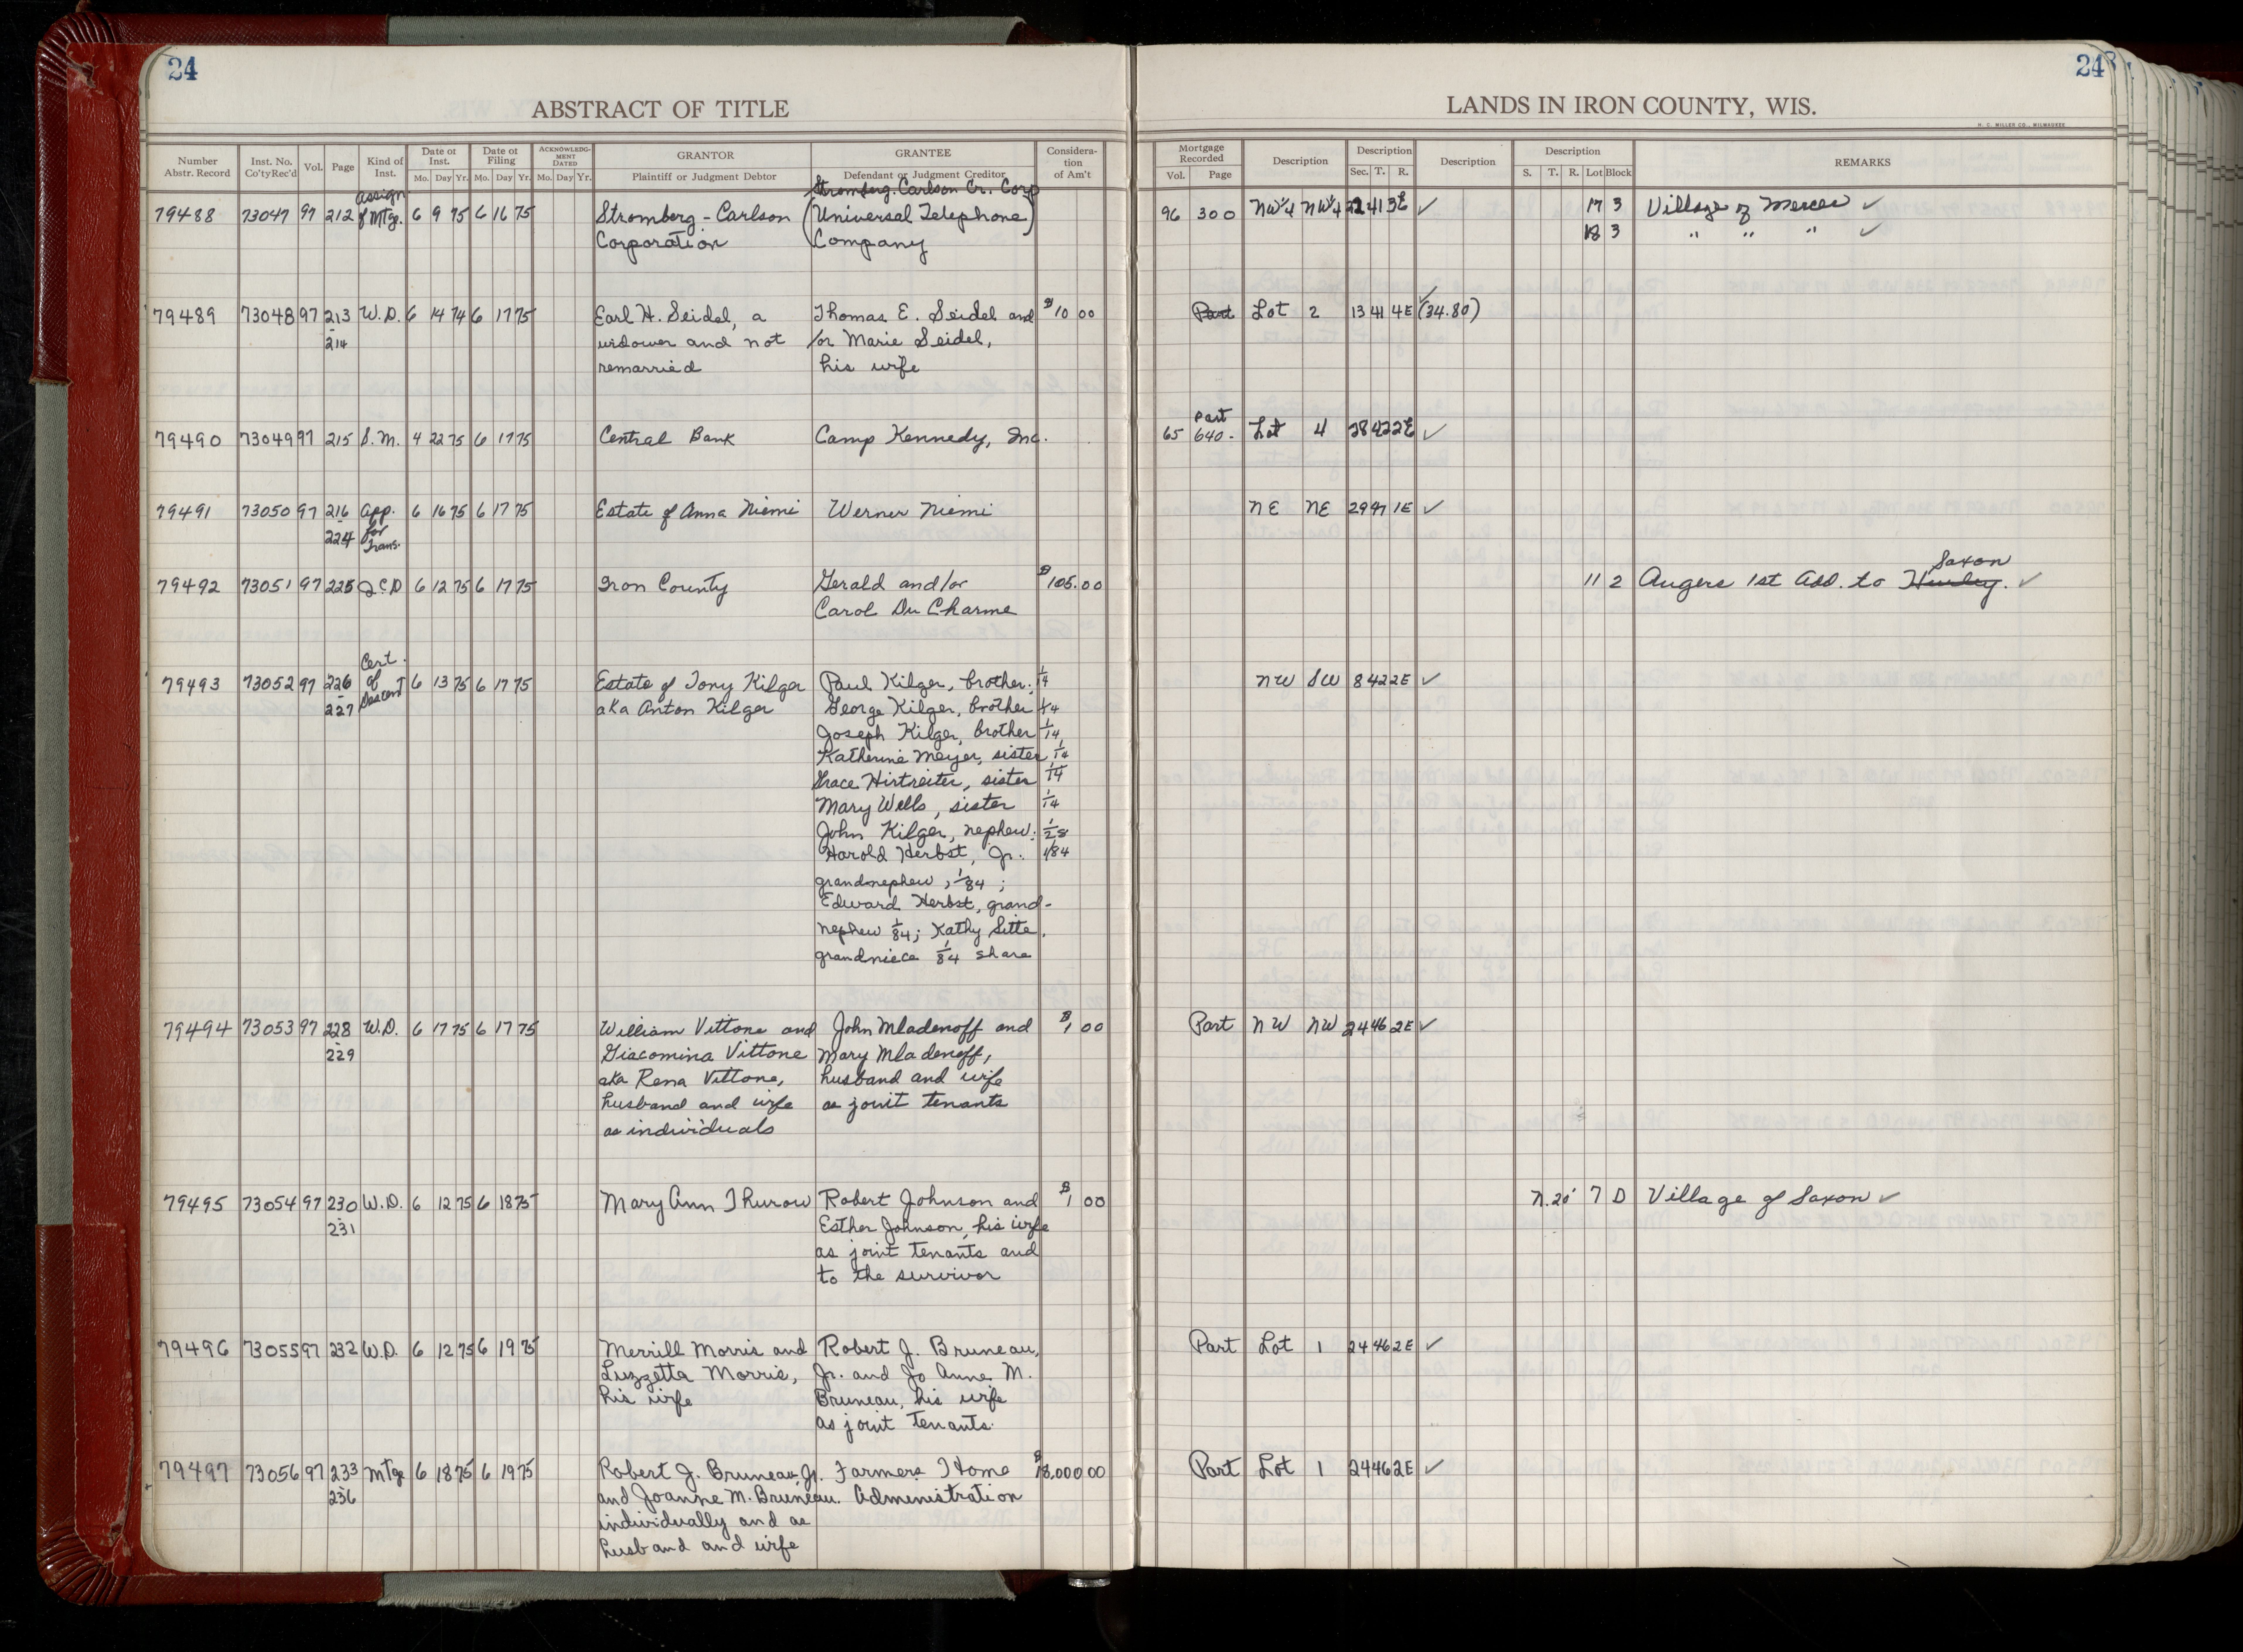 24
ABSTRACT OF TITLE
Number Abstr. Record | Inst. No. Co'ty Rec'd | Vol. | Page | Kind of Inst. | Date of Inst. Mo. Day Yr. | Date of Filing Mo. Day Yr. | ACKNOWLEDGMENT DATED Mo. Day Yr. | GRANTOR Plaintiff or Judgment Debtor | GRANTEE Defendant or Judgment Creditor | Consideration of Am't
Assign Stromberg-Carlson Cr. Corp
79488 73047 97 212 of Mtge. 6 9 75 6 16 75 Stromberg-Carlson (Universal Telephone)
Corporation Company
79489 73048 97 213 W.D. 6 14 74 6 17 75 Earl H. Seidel, a Thomas E. Seidel and $10 00
- 214 widower and not /or Marie Seidel,
remarried his wife
79490 73049 97 215 S.M. 4 22 75 6 17 75 Central Bank Camp Kennedy, Inc.
79491 73050 97 216 App. 6 16 75 6 17 75 Estate of Anna Niemi Werner Niemi
- 224 for
Trans.
79492 73051 97 225 QCD 6 12 75 6 17 75 Iron County Gerald and/or $105.00
Carol Du Charme
Cert.
79493 73052 97 226 of 6 13 75 6 17 75 Estate of Tony Kilger Paul Kilger, brother; 1/14
- 227 Descent aka Anton Kilger George Kilger, brother 1/14
Joseph Kilger, brother 1/14
Katherine Meyer, sister 1/14
Grace Hirtreiter, sister 1/14
Mary Wells, sister 1/14
John Kilger, nephew; 1/28
Harold Herbst, Jr. 1/84
grandnephew, 1/84;
Edward Herbst, grand-
nephew 1/84; Kathy Sitte,
grandniece 1/84 share
79494 73053 97 228 W.D. 6 17 75 6 17 75 William Vittone and John Mladenoff and $1 00
- 229 Giacomina Vittone Mary Mladenoff,
aka Rena Vittone, husband and wife
husband and wife as joint tenants
as individuals
79495 73054 97 230 W.D. 6 12 75 6 18 75 Mary Ann Thurow Robert Johnson and $1 00
- 231 Esther Johnson, his wife
as joint tenants and
to the survivor
79496 73055 97 232 W.D. 6 12 75 6 19 75 Merrill Morris and Robert J. Bruneau,
Luzzetta Morris, Jr. and Jo Anne M.
his wife Bruneau, his wife
as joint tenants.
79497 73056 97 233 Mtge 6 18 75 6 19 75 Robert J. Bruneau, Jr. Farmers Home $18,000.00
- 236 and Joanne M. Bruneau. Administration
individually and as
husband and wife
24
LANDS IN IRON COUNTY, WIS.
H. C. MILLER CO., MILWAUKEE
Mortgage Recorded Vol. Page | Description | Description Sec. T. R. | Description | Description S. T. R. Lot Block | REMARKS
96 300 NW¼ NW¼ 41 3E ✓ 17 3 Village of Mercer ✓
18 3 " " " ✓
Part Lot 2 13 41 4E ✓ (34.80)
Part
65 640- Lot 4 28 42 2E ✓
NE NE 29 1E ✓
Saxon
11 2 Augers 1st Add. to Hurley. ✓
NW SW 8 42 2E ✓
Part NW NW 24 46 2E ✓
N.20' 7 D Village of Saxon ✓
Part Lot 1 24 46 2E ✓
Part Lot 1 24 46 2E ✓